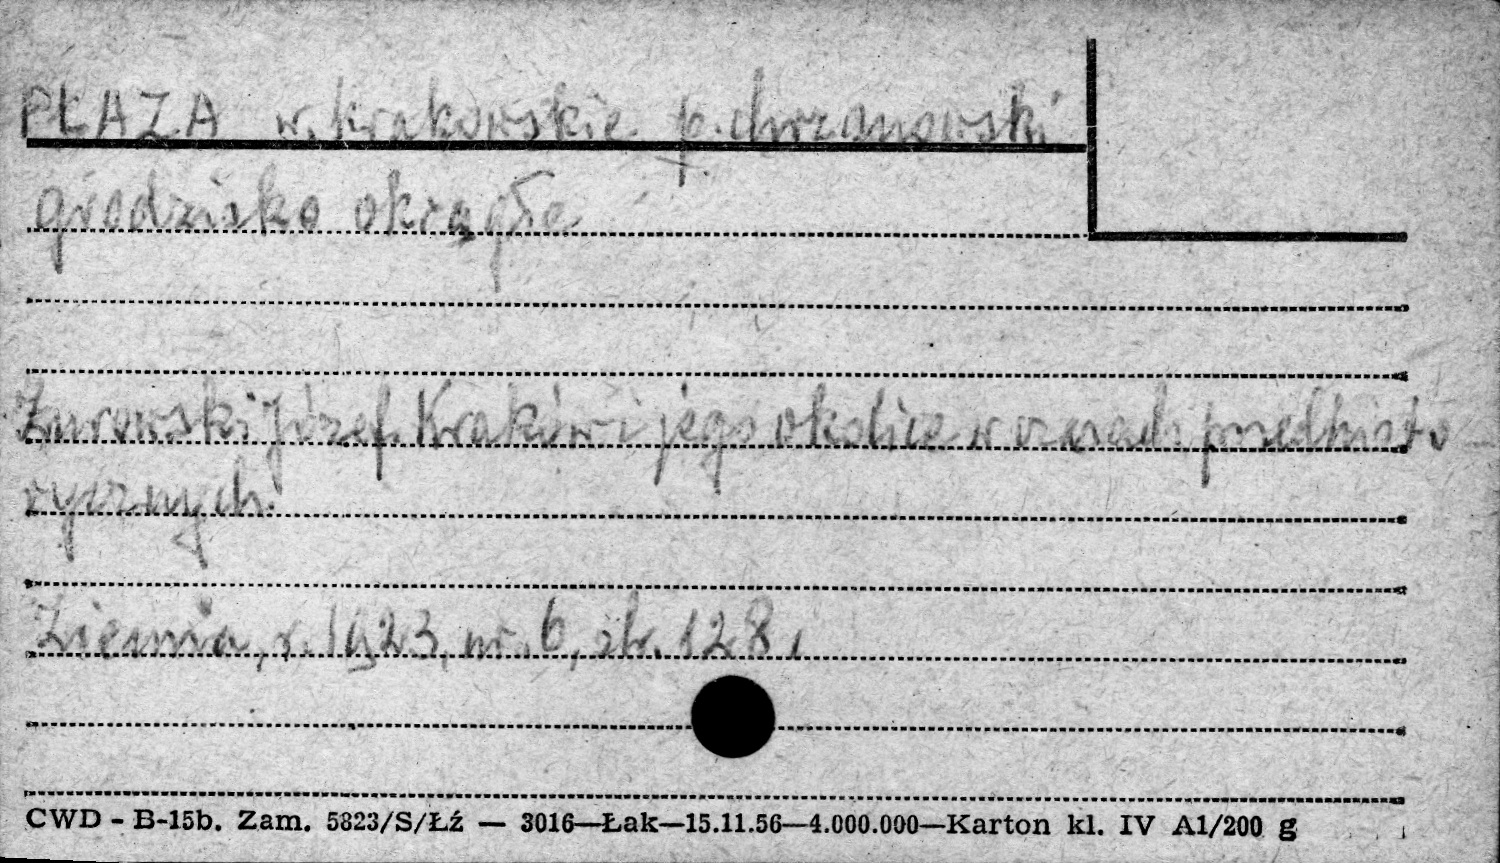 PŁAZA w. krakowskie p. chrzanowski
grodzisko okrągłe
Żurowski Józef. Kraków i jego okolice w czasach przedhisto-
rycznych.
Ziemia, r. 1923, nr. 6, str. 128,
CWD - B-15b. Zam. 5823/S/Łź — 3016—Łak—15.11.56—4.000.000—Karton kl. IV A1/200 g